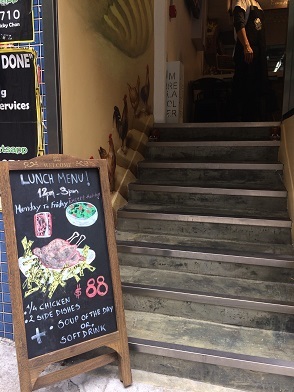 710
cky Chan
DONE"
g
ervices
tsapp
WELCOME
LUNCH MENU!
12pm - 3pm
Monday to Friday
$88
• 1/4 CHICKEN
• 2 SIDE DISHES
+ • SOUP OF THE DAY
OR
SOFT DRINK